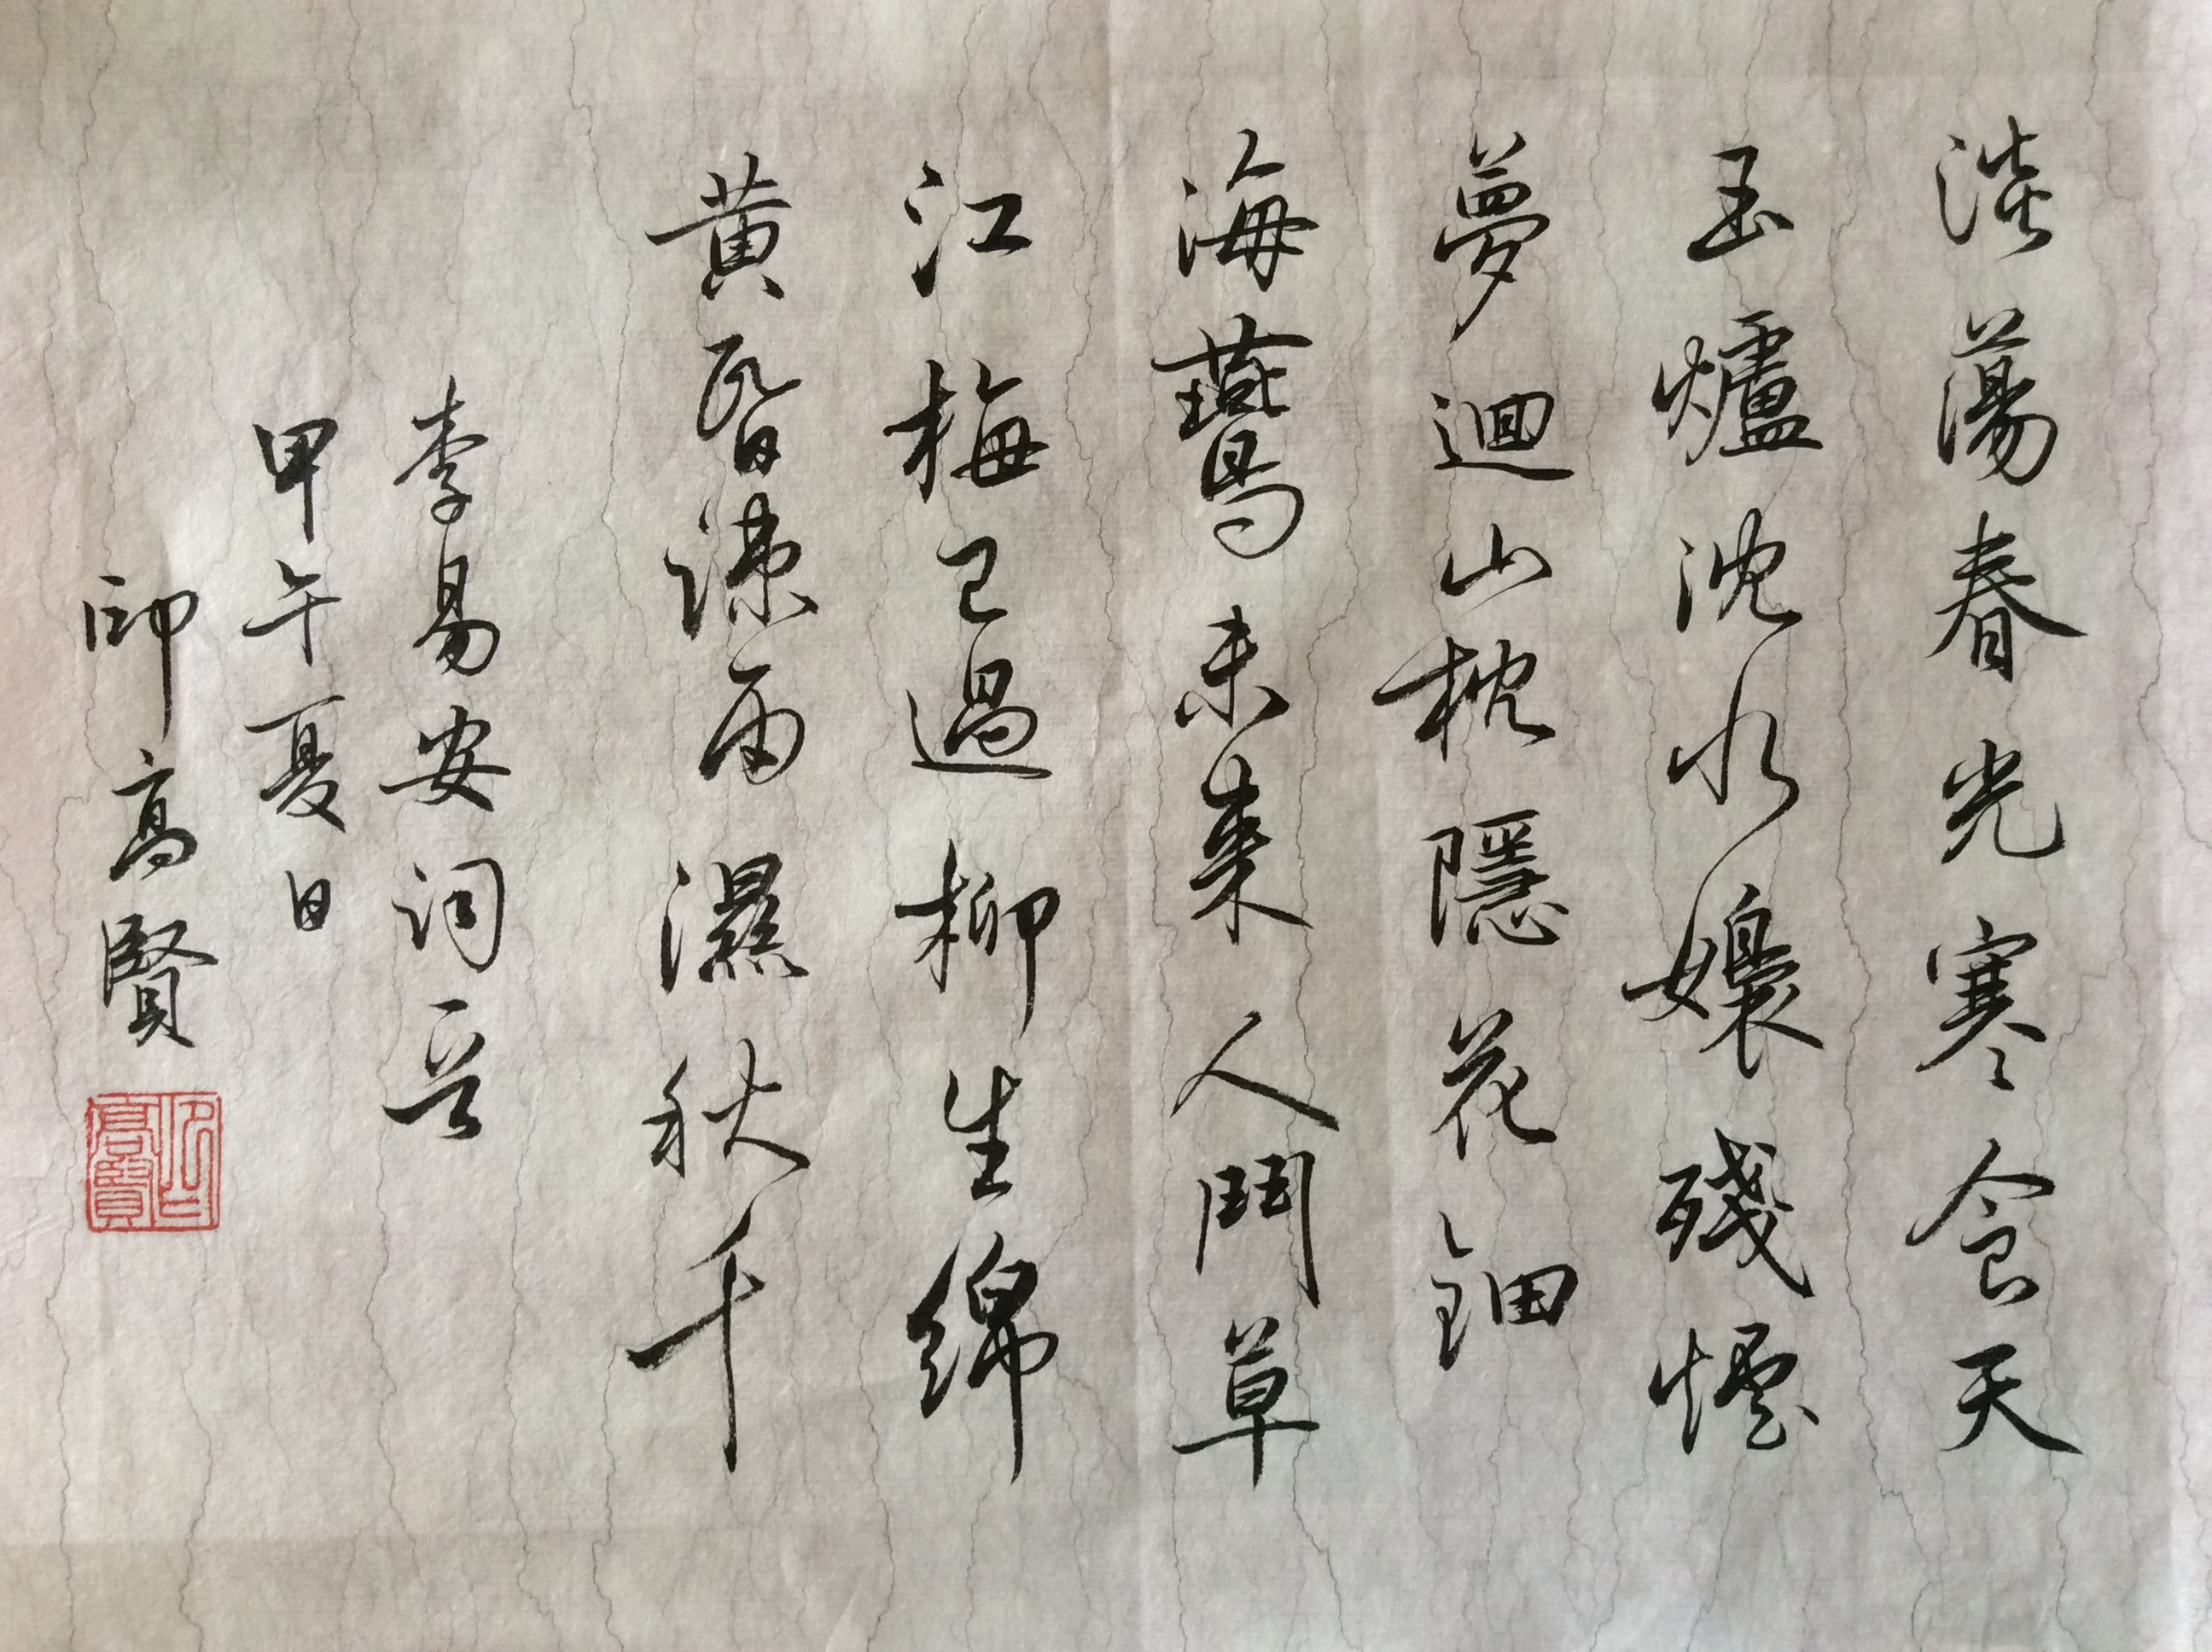 淡蕩春光寒食天
玉爐沈水嬝殘煙
夢迴山枕隱花鈿
海鷰未來人鬥草
江梅已過柳生綿
黃昬疎雨濕秋千
李易安詞一首
甲午夏日
印高賢
印高賢